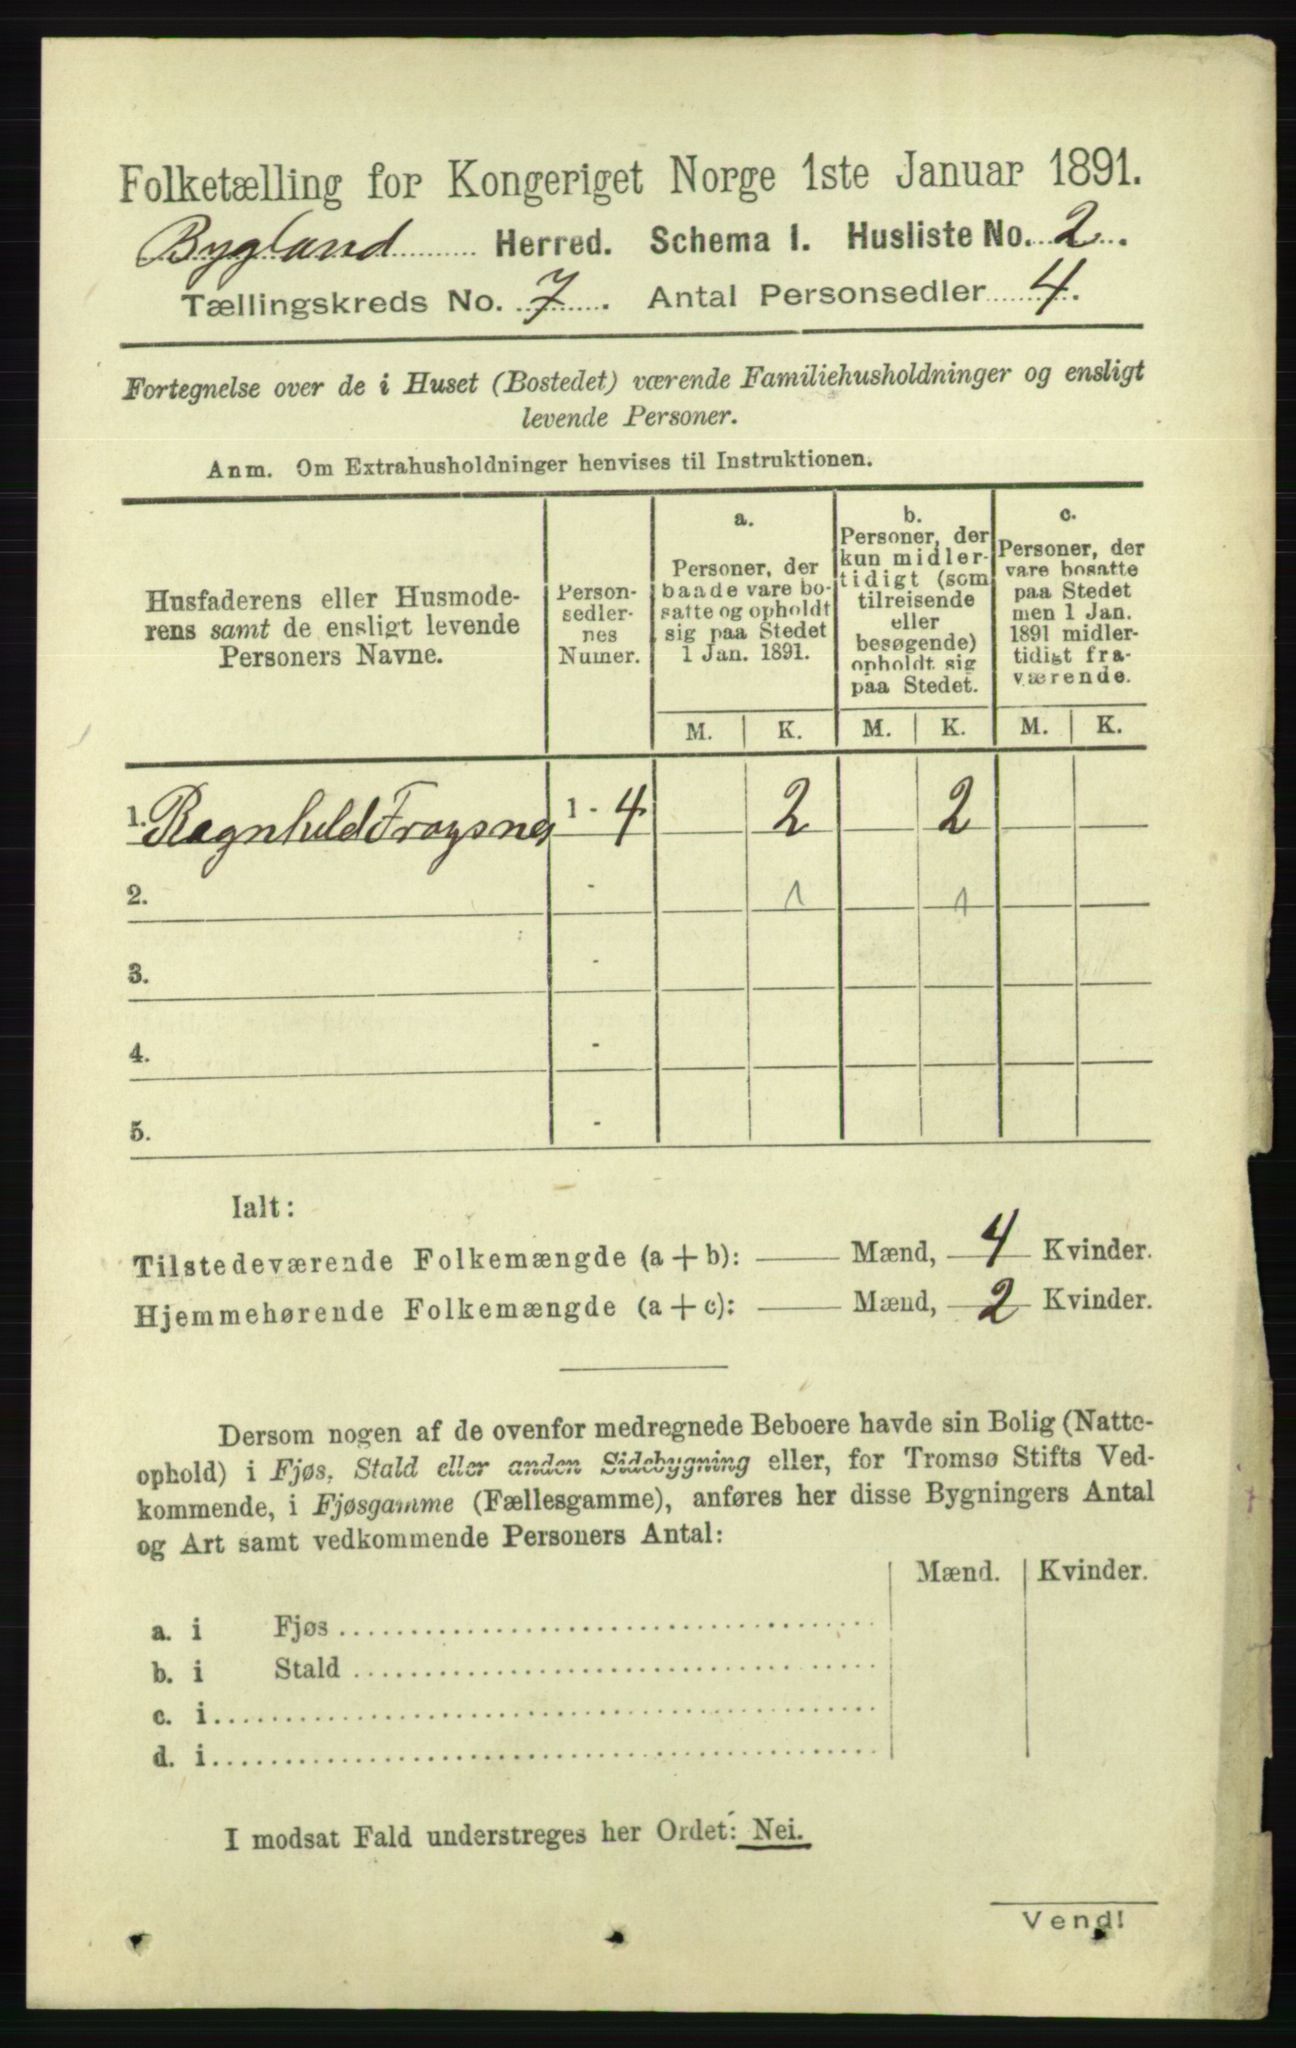 Folketælling for Kongeriget Norge 1ste Januar 1891.
Bygland Herred. Schema 1. Husliste No. 2.
Tællingskreds No. 7. Antal Personsedler 4.
Fortegnelse over de i Huset (Bostedet) værende Familiehusholdninger og ensligt
levende Personer.
Anm. Om Extrahusholdninger henvises til Instruktionen.
Husfaderens eller Husmode-
rens samt de ensligt levende
Personers Navne.
Person-
sedler-
nes
Numer.
a.
Personer, der
baade vare bo-
satte og opholdt
sig paa Stedet
1 Jan. 1891.
b.
Personer, der
kun midler-
tidigt (som
tilreisende
eller
besøgende)
opholdt sig
paa Stedet.
c.
Personer, der
vare bosatte
paa Stedet
men 1 Jan.
1891 midler-
tidigt fra-
værende.
M. K. M. K. M. K.
1. Ragnhild 1 - 4 2 2
2. - 1 1
3. -
4. -
5. -
Ialt:
Tilstedeværende Folkemængde (a + b): — Mænd, 4 Kvinder.
Hjemmehørende Folkemængde (a + c): — Mænd, 2 Kvinder.
Dersom nogen af de ovenfor medregnede Beboere havde sin Bolig (Natte-
ophold) i Fjøs, Stald eller anden Sidebygning eller, for Tromsø Stifts Ved-
kommende, i Fjøsgamme (Fællesgamme), anføres her disse Bygningers Antal
og Art samt vedkommende Personers Antal:
Mænd. Kvinder.
a. i Fjøs
b. i Stald
c. i
d. i
I modsat Fald understreges her Ordet: Nei.
Vend!